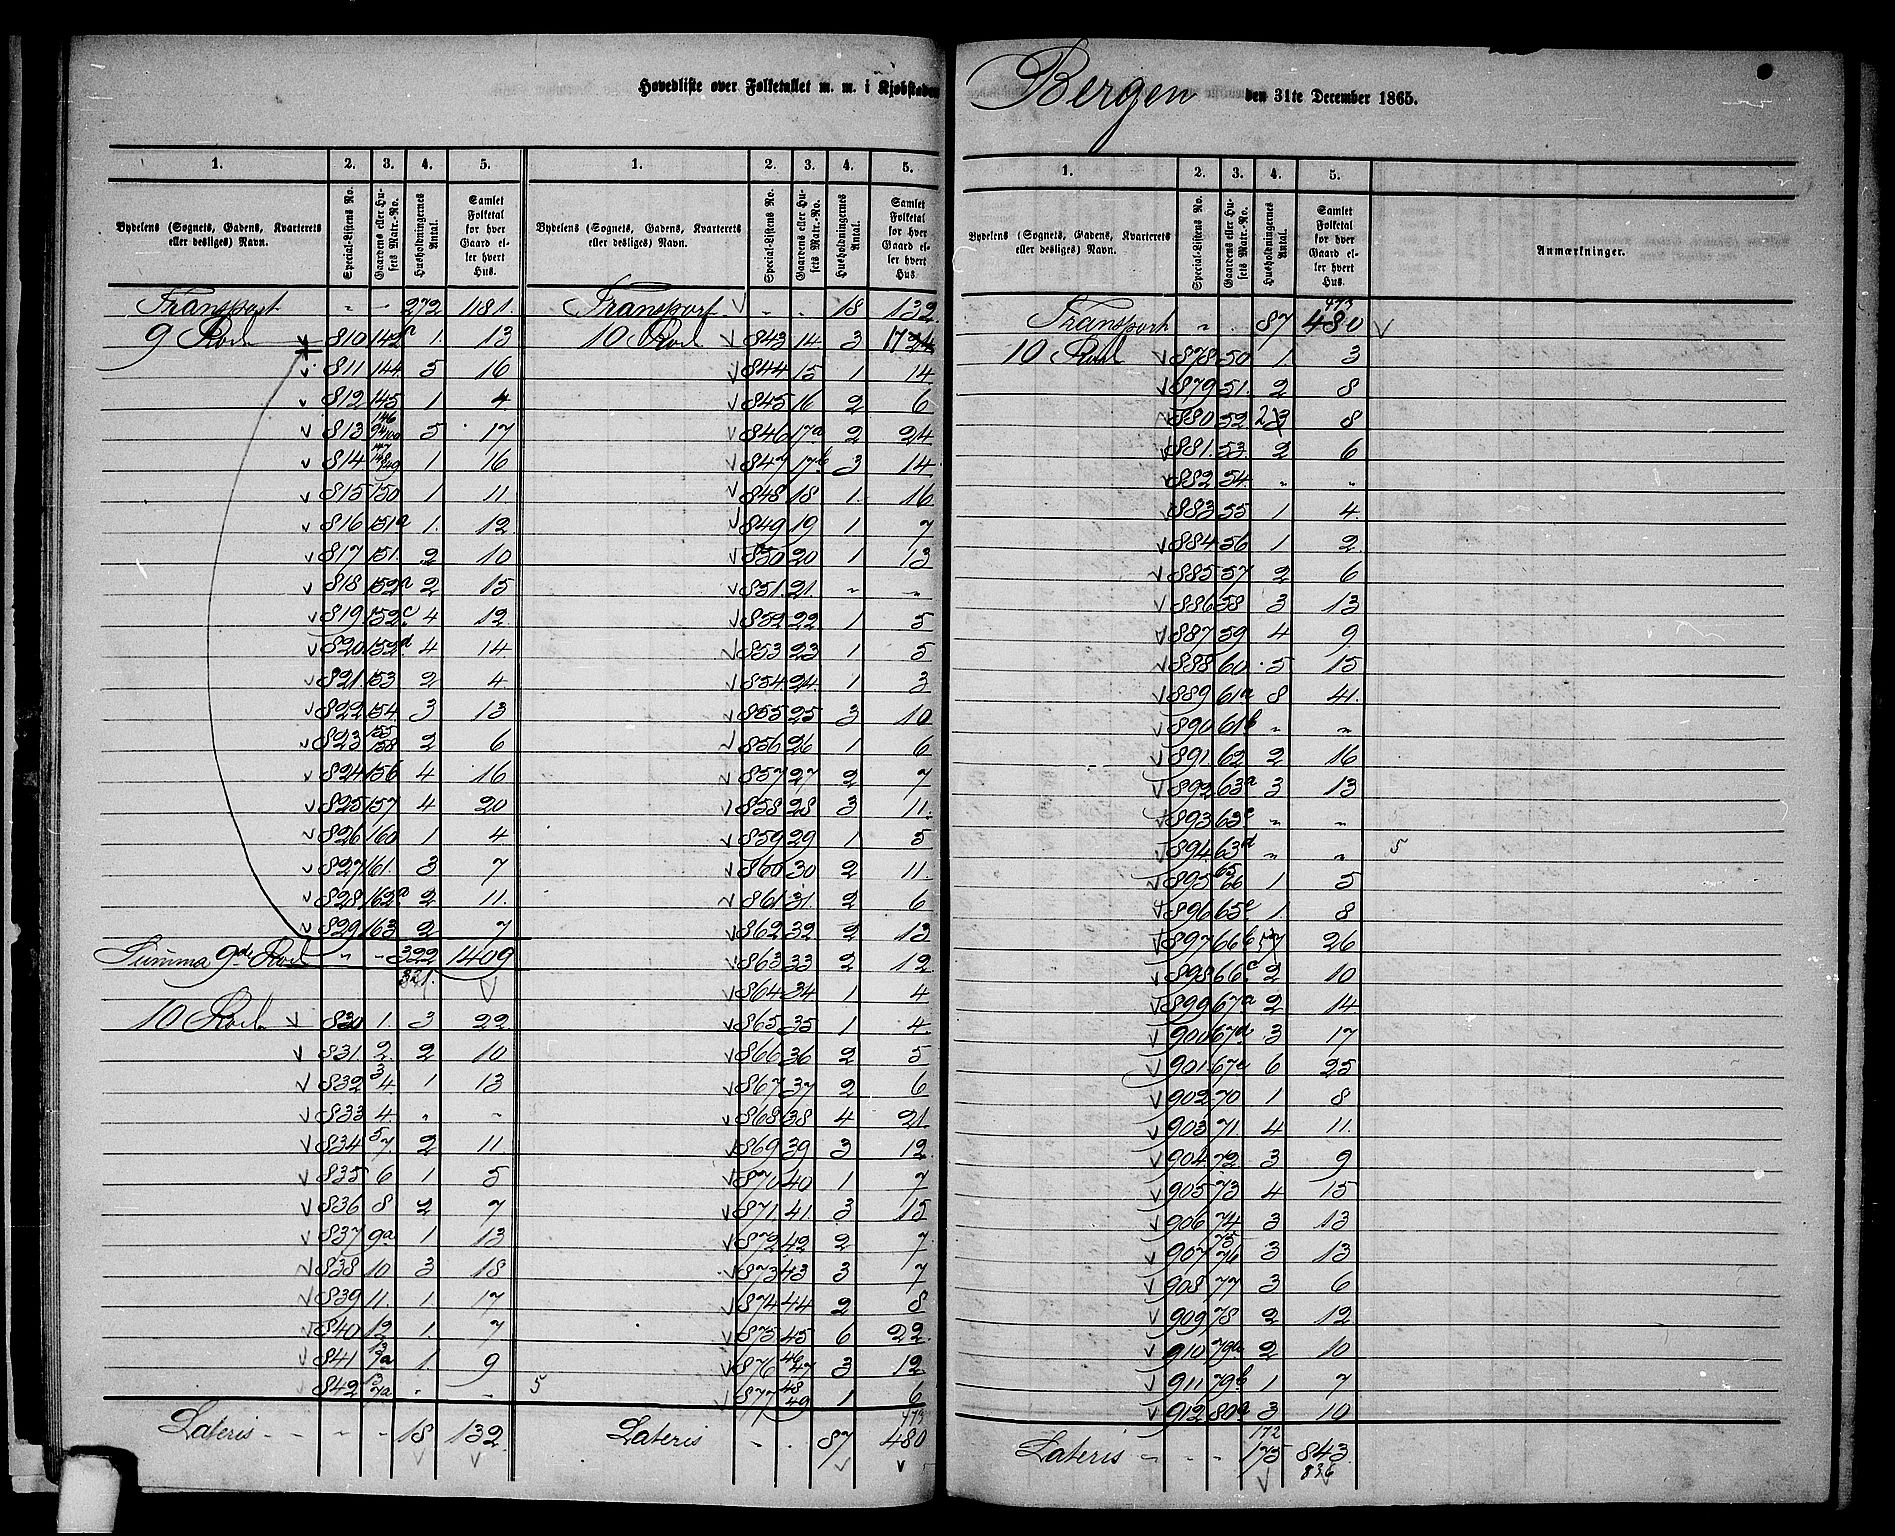 Hovedliste over Folketallet m. m. i Kjøbstaden Bergen den 31te December 1865.
1. 2. 3. 4. 5. 1. 2. 3. 4. 5.
Bydelens (Sognets, Gadens, Kvarterets eller desliges) Navn. Special-Listens No. Gaardens eller Husets Matr.-No. Husholdningernes Antal. Samlet Folketal for hver Gaard eller hvert Hus. Bydelens (Sognets, Gadens, Kvarterets eller desliges) Navn. Special-Listens No. Gaardens eller Husets Matr.-No. Husholdningernes Antal. Samlet Folketal for hver Gaard eller hvert Hus.
Transport " " 272 1181.
9 Rode 810 142a 1. 13
811 144 5 16
812 145 1 4
813 5 17
814 1 16
815 150 1 11
816 151a 1. 12
817 151. 2 10
818 152a 2 15
819 152c 4 12
820 152d 4 14
821. 153 2 4
822 154 3 13
823 155 158 2 6
824 156 4 16
825 157 4 20
826 160 1 4
827 161. 3 7
828 162a 2 11.
829 163 2 7
Summa 9de Rode " " 322 1409
321.
10 Rode 830 1. 3 22
831 2. 2 10
832 3 4. 1 13
833 4. " "
834 5 7. 2 11.
835 6 1 5
836 8 2 7
837 9a 1 13
838 10 3 18
839 11. 1 17
840 12 1 7
841 1 9
842 " "
Lateris " " 18 132
Transport " " 18 132
10 Rode 843 14. 3 17 24
844 15 1 14
845 16 2 6
846 17a 2 24
847 17b 3 14
848 18 1. 16
849 19 1 7
850 20 1 13
851. 21. " "
852 22 1 5
853 23 1 5
854 24 1 3
855 25 3 10
856 26 1 6
857 27 2 7
858 28 3 11.
859 29 1 5
860 30 2 11.
861 31. 2 6
862 32 2 13
863 33 2 12
864 34 1 4
865 35 1 4
866 36 2 5
867 37 2 6
868 38 4 21
869 39 3 12
870 40 1 7
871 41. 3 15
872 42 2 7
873 43 3 7
874 44 2 8
875 45 6 22
876 46 47 3 12
5
877 48 49 1 6
473
Lateris " " 87 480
1. 2. 3. 4. 5.
Bydelens (Sognets, Gadens, Kvarterets eller desliges) Navn. Special-Listens No. Gaardens eller Husets Matr.-No. Husholdningernes Antal. Samlet Folketal for hver Gaard eller hvert Hus. Anmærkninger.
473
Transport " " 87 480
10 Rode 878 50 1. 3
879 51. 2 8
880 52 2 3 8
881. 53. 2 6
882 54. " "
883 55 1 4
884 56 1 2
885 57 2 6
886 58 3 13
887 59 4 9
888 60 5 15
889 61a 8 41.
890 61b " "
891 62 2 16
892 63a 3 13
893 63c " "
894 63d " " 5
895 65 66 1 5
896 65c 1. 8
897 66b 7 26
898 66c 2 10
899 67a 2 14
900 67d 3 17
901 67e 6 25
902 70 1 8
903 71 4 11.
904 72 3 9
905 73 4 15
906 74 3 13
907 75 76 3 13
908 77 3 6
909 78 2 12
910 79a 2 10
911 79b 1 7
912 80a 3 10
172
Lateris " " 175 843
836